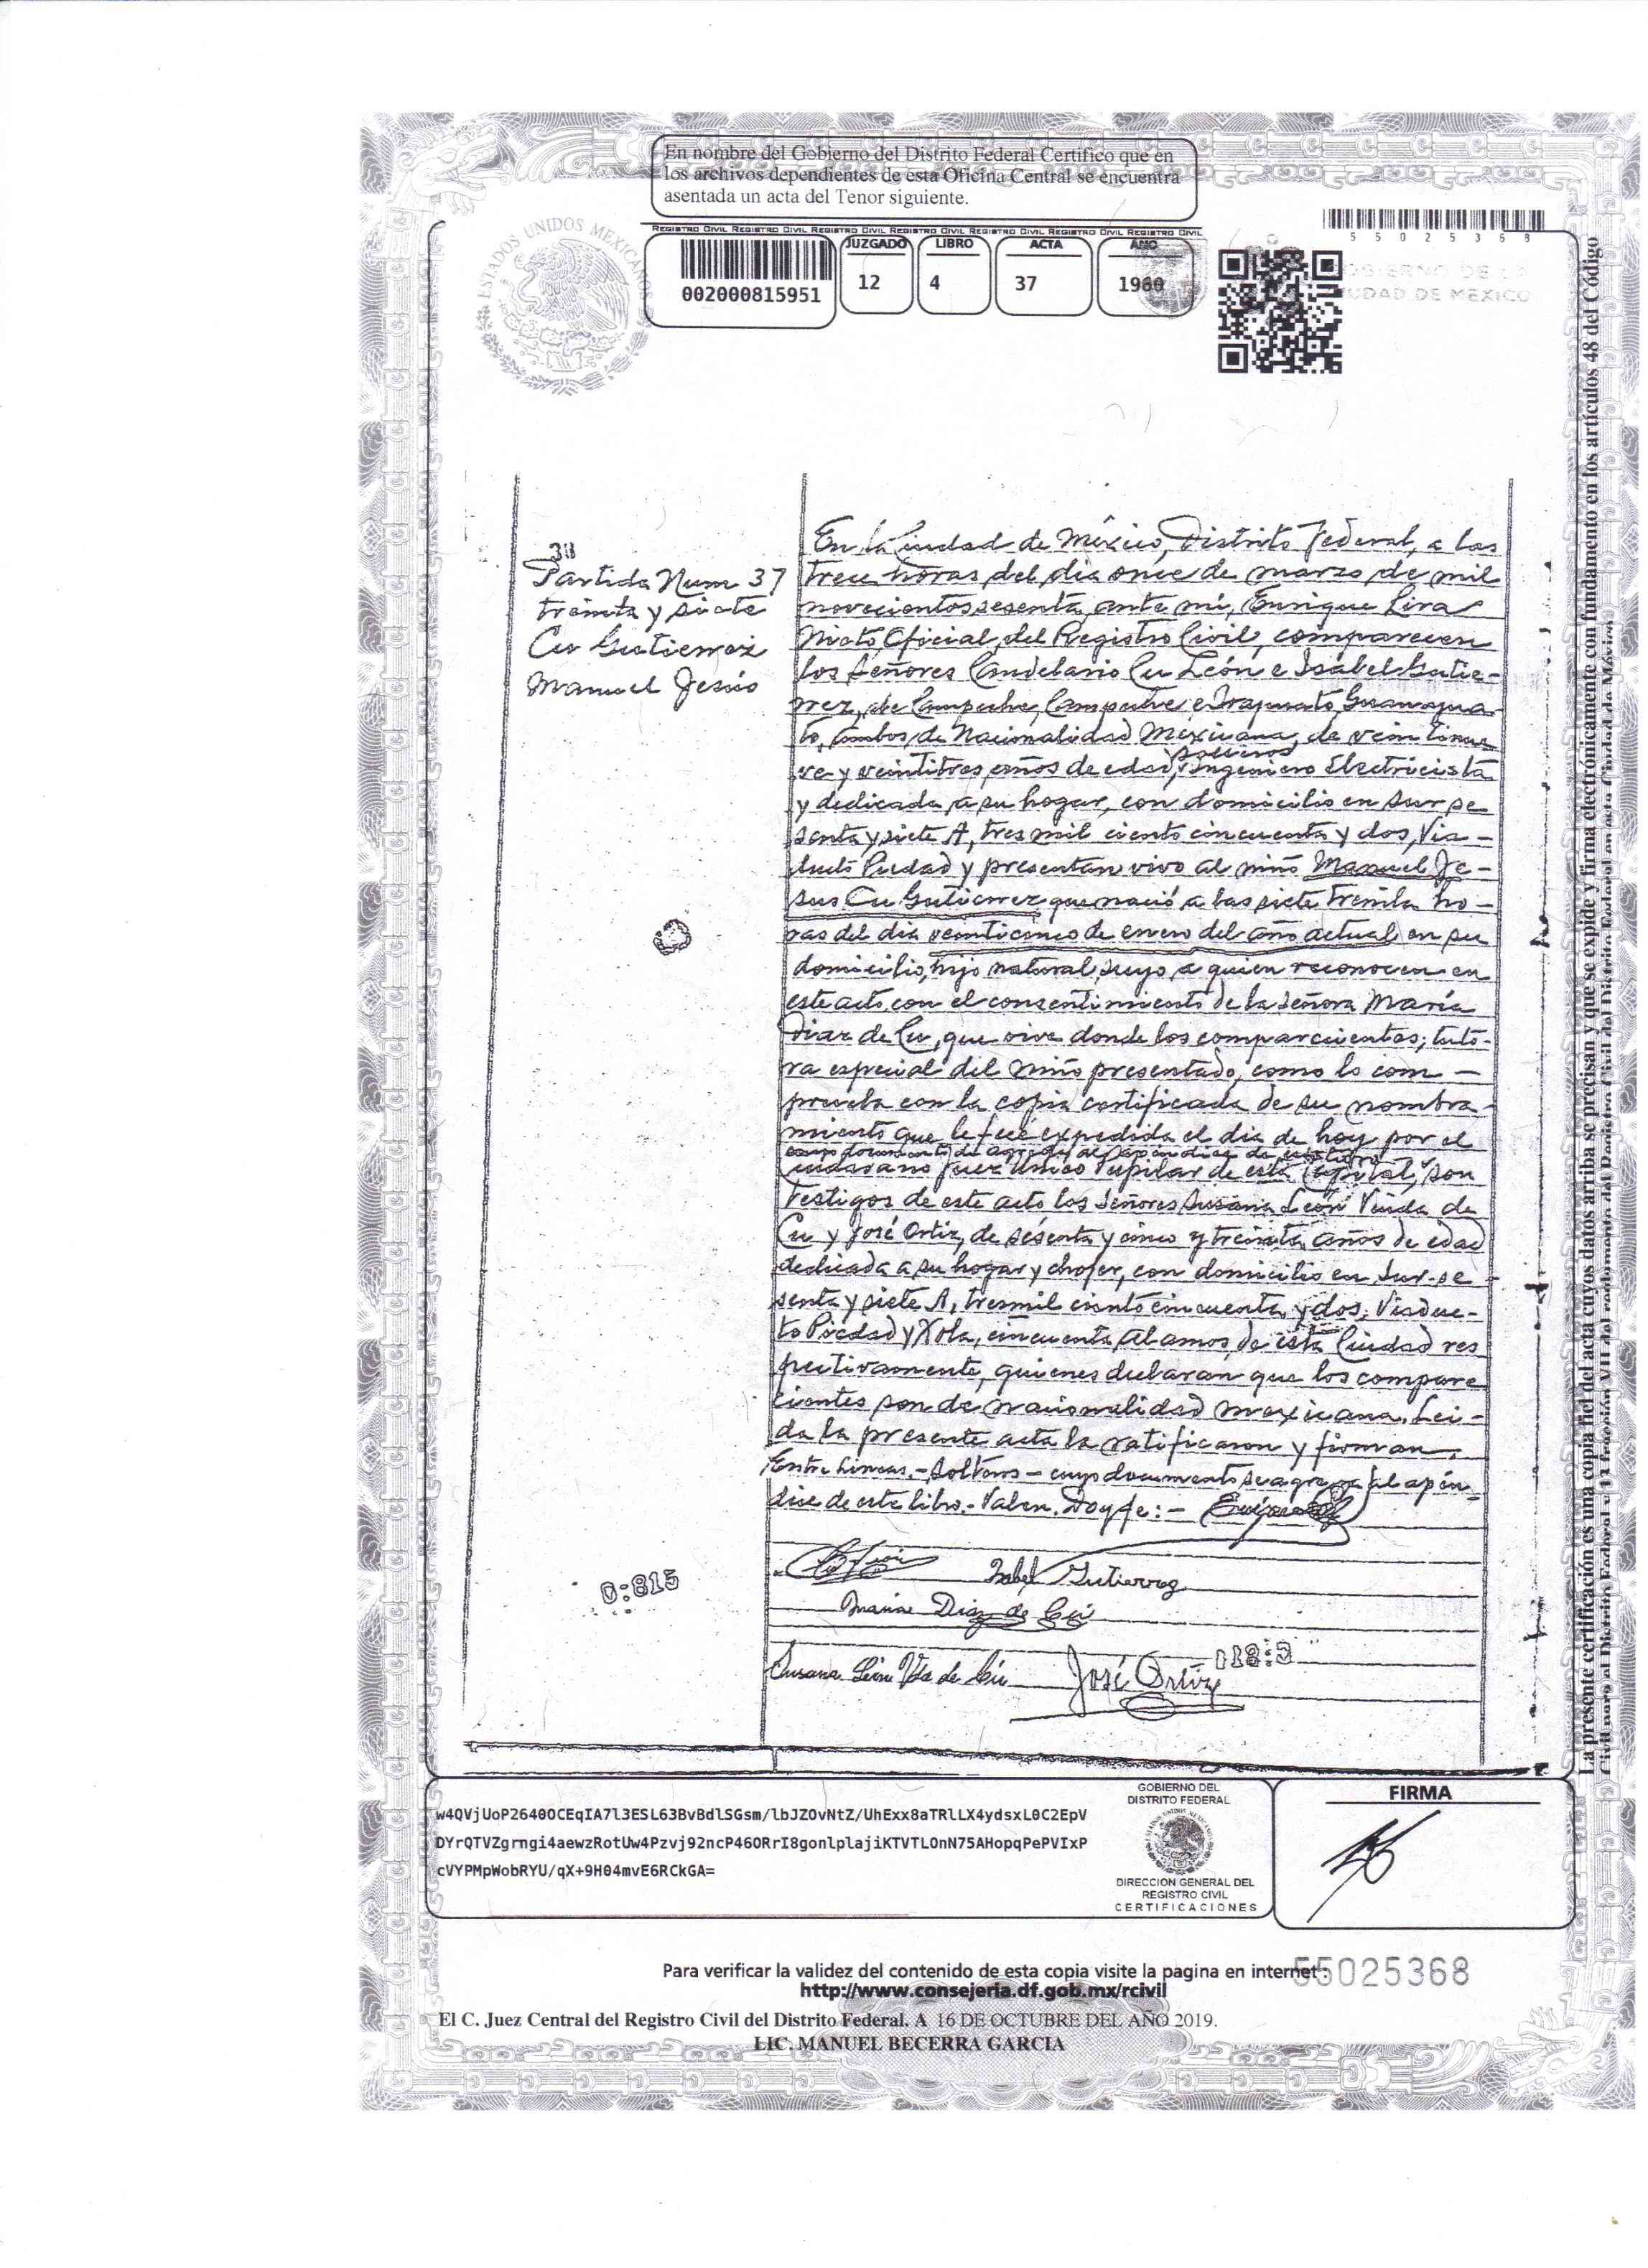 En nombre del Gobierno del Distrito Federal Certifico que en
los archivos dependientes de esta Oficina Central se encuentra
asentada un acta del Tenor siguiente.
ESTADOS UNIDOS MEXICANOS
REGISTRO CIVIL REGISTRO CIVIL REGISTRO CIVIL REGISTRO CIVIL REGISTRO CIVIL REGISTRO CIVIL REGISTRO CIVIL
002000815951
JUZGADO
12
LIBRO
4
ACTA
37
AÑO
1960
55025368
GOBIERNO DE LA
CIUDAD DE MÉXICO
38
Partida Num 37
treinta y siete
Cu Gutierrez
Manuel Jesús
En la Ciudad de México, Distrito Federal, a las
trece horas del dia once de marzo de mil
novecientos sesenta, ante mi, Enrique Lira
Nieto, Oficial del Registro Civil, comparecen
los Señores Candelario Cu León e Isabel Gutie-
rrez, de Campeche, Campeche e Irapuato, Guanajua-
to, ambos de Nacionalidad Mexicana, de veintinue
solteros
ve y veintitres años de edad, Ingeniero Electricista
y dedicada a su hogar, con domicilio en Sur se
senta y siete A, tres mil ciento cincuenta y dos, Via-
ducto Piedad y presentan vivo al niño Manuel Je-
sus Cu Gutierrez que nació a las siete treinta ho-
ras del dia veinticinco de enero del año actual en su
domicilio, hijo natural suyo, a quien reconocen en
este acto, con el consentimiento de la Señora María
Diaz de Cu, que vive donde los comparecientes; tuto-
ra especial del niño presentado, como lo com-
prueba con la copia certificada de su nombra-
miento que le fué expedida el dia de hoy por el
cuyo documento se agrega al apéndice de este libro
ciudadano Juez Unico Pupilar de esta Capital, son
testigos de este acto los Señores Susana León Viuda de
Cu y José Ortiz, de sesenta y cinco y treinta años de edad
dedicada a su hogar y chofer, con domicilio en Sur-se
senta y siete A, tresmil ciento cincuenta y dos, Viaduc-
to Piedad y Xola, cincuenta, Alamos, de esta Ciudad res
pectivamente, quienes declaran que los compare
cientes son de nacionalidad mexicana. Lei-
da la presente acta la ratificaron y firman.
Entre lineas.-solteros-cuyo documento se agrega al apén-
dice de este libro.-Valen. Doy fe:-
0:815
Isabel Gutierrez
Maria Diaz de Cú
118:3
Susana León Vda de Cú
José Ortiz
w4QVjUoP2640OCEqIA7l3ESL63BvBdlSGsm/lbJZOvNtZ/UhExx8aTRlLX4ydsxL0C2EpV
DYrQTVZgrngi4aewzRotUw4Pzvj92ncP46ORrI8gonlplajiKTVTLOnN75AHopqPePVIxP
cVYPMpWobRYU/qX+9H04mvE6RCkGA=
GOBIERNO DEL
DISTRITO FEDERAL
DIRECCION GENERAL DEL
REGISTRO CIVIL
CERTIFICACIONES
FIRMA
Para verificar la validez del contenido de esta copia visite la pagina en internet:
55025368
http://www.consejeria.df.gob.mx/rcivil
El C. Juez Central del Registro Civil del Distrito Federal. A 16 DE OCTUBRE DEL AÑO 2019.
LIC. MANUEL BECERRA GARCIA
La presente certificación es una copia fiel del acta cuyos datos arriba se precisan y que se expide y firma electrónicamente con fundamento en los artículos 48 del Código